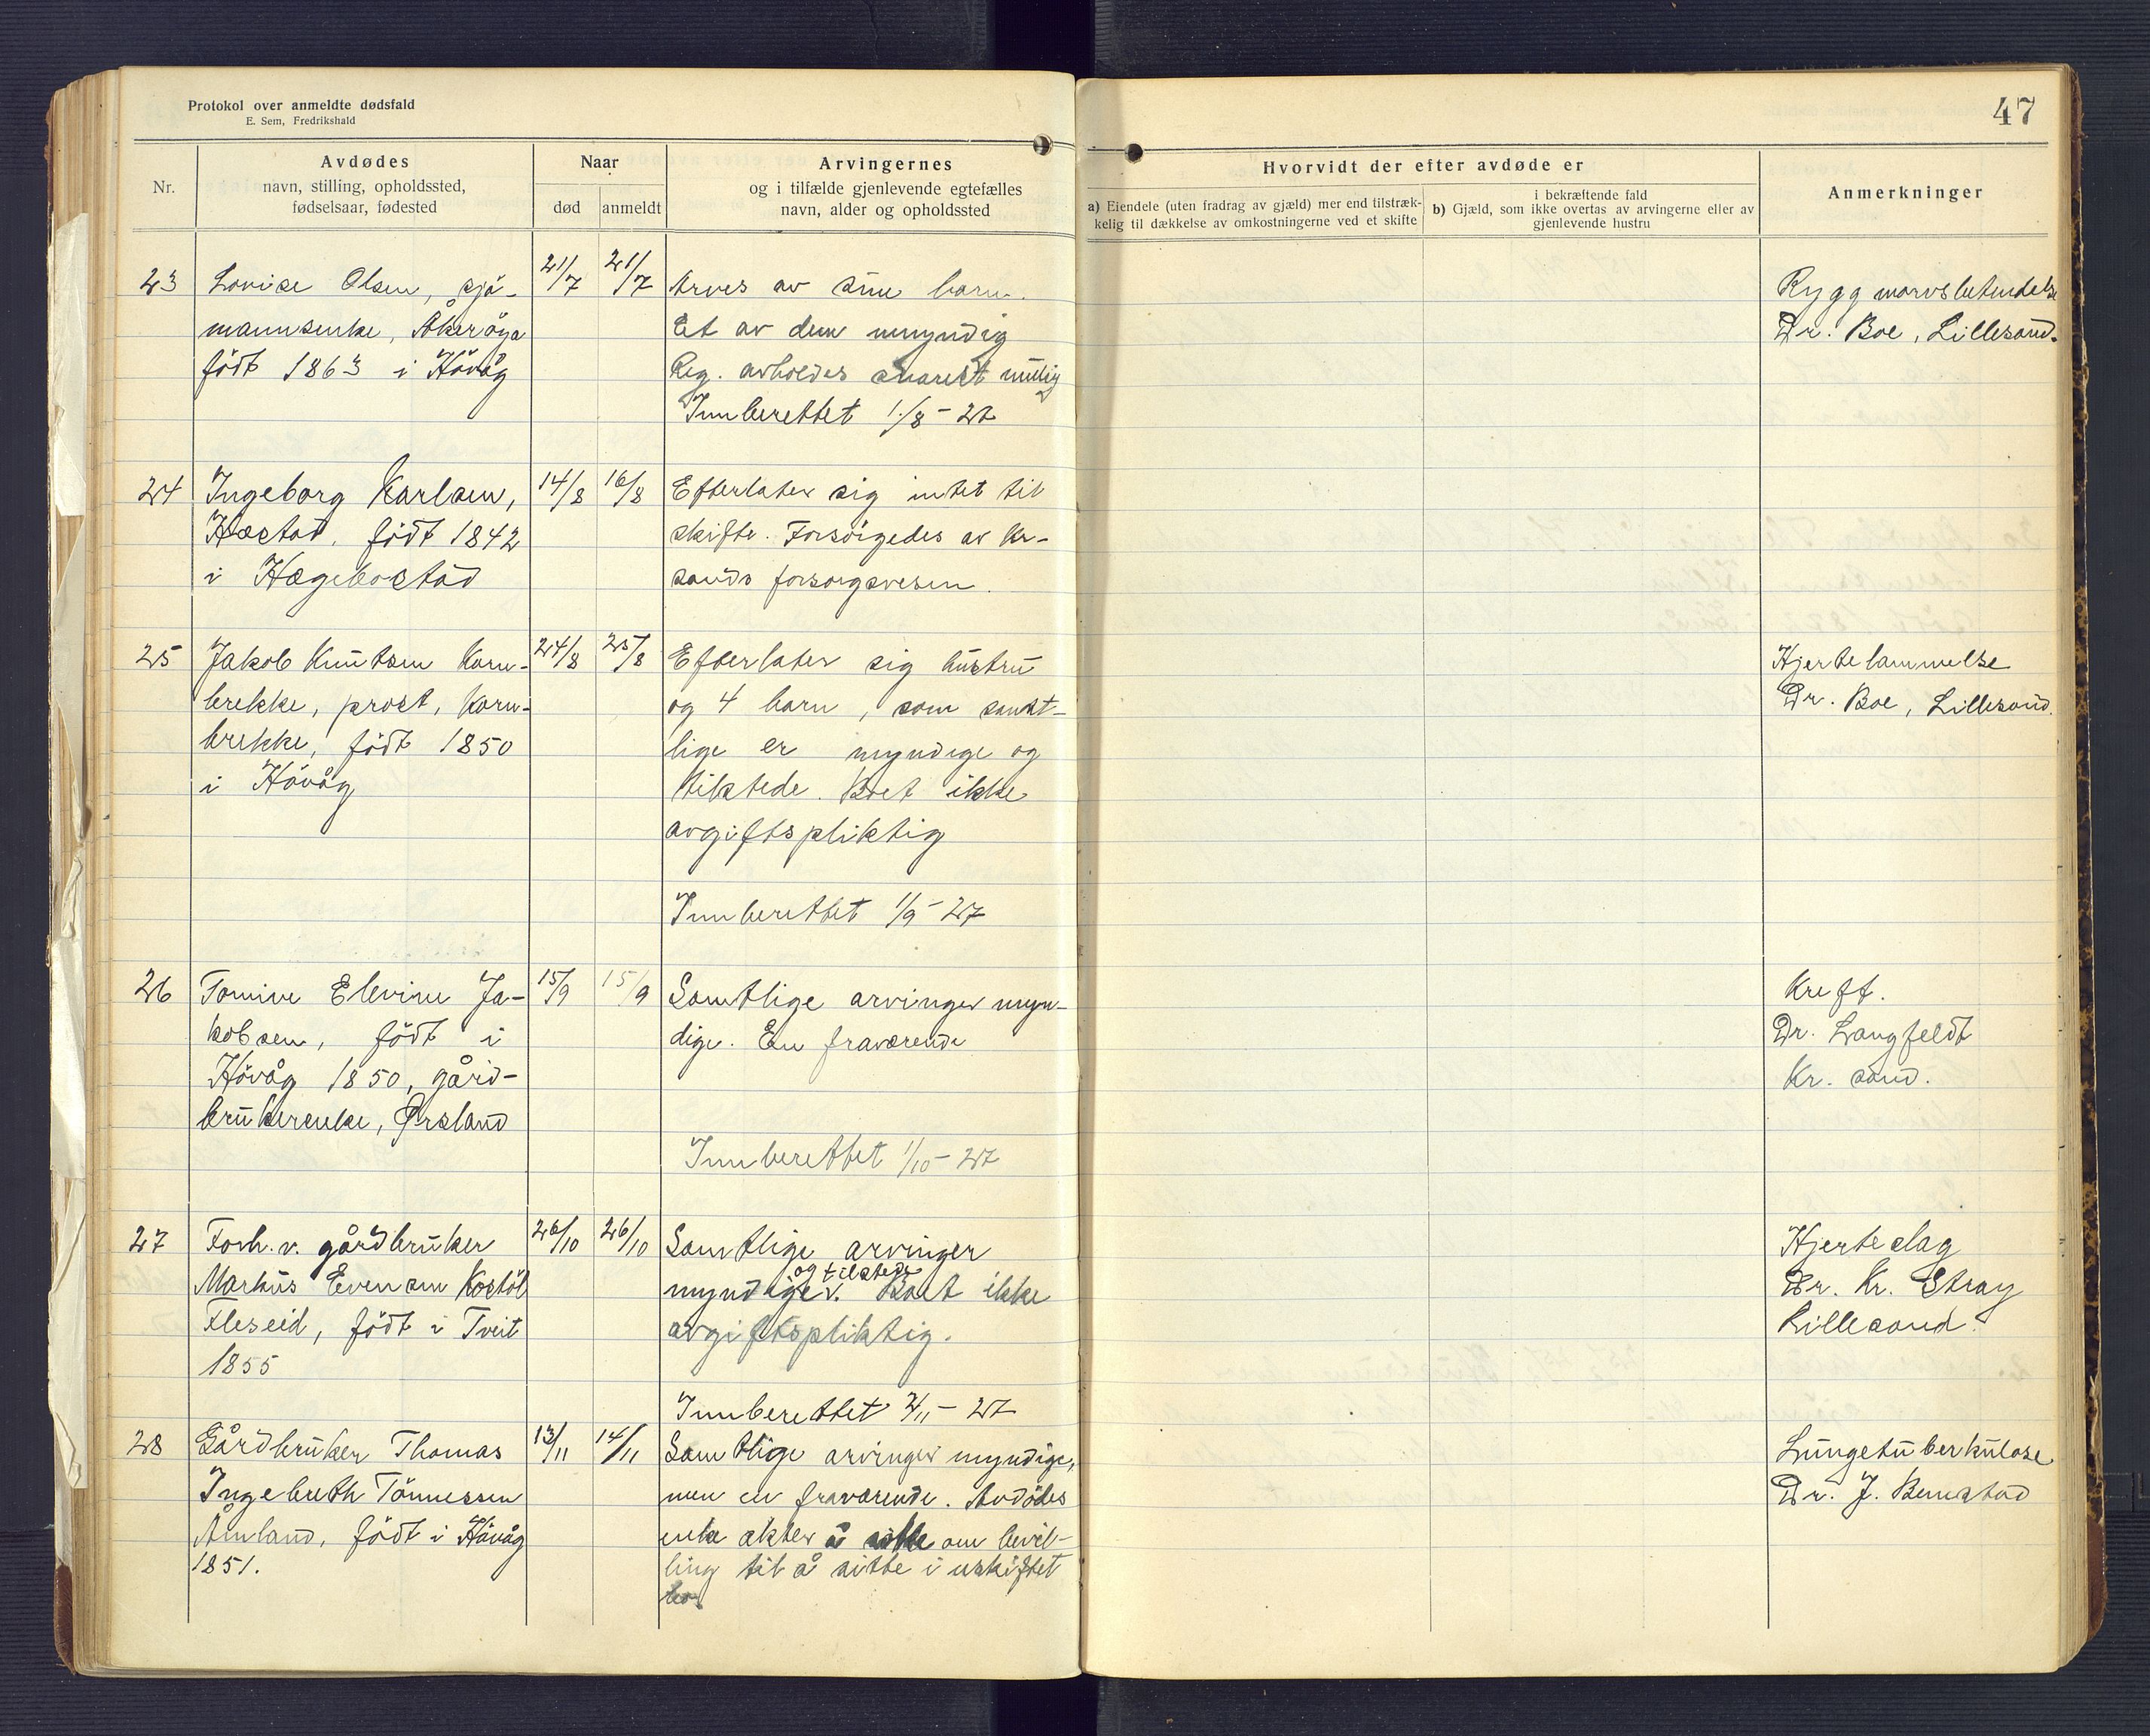 Protokol over anmeldte dødsfald
E. Sem, Fredrikshald
47
Nr.
Avdødes
navn, stilling, opholdssted,
fødselsaar, fødested
Naar
død
anmeldt
Arvingernes
og i tilfælde gjenlevende egtefælles
navn, alder og opholdssted
Hvorvidt der efter avdøde er
a) Eiendele (uten fradrag av gjæld) mer end tilstræk-
kelig til dækkelse av omkostningerne ved et skifte
i bekræftende fald
b) Gjæld, som ikke overtas av arvingerne eller av
gjenlevende hustru
Anmerkninger
23
Lovise Olsen, sjø-
mannsenke, Åkerøya
födt 1863 i Hövåg
21/7
21/7
Arves av sine barn.
Et av dem umyndig
Reg. avholdes snarest mulig
Innberettet 1/8 - 27
Ryggmarvsbetendelse
Dr. Boe, Lillesand.
24
Ingeborg Karlsen,
Hæstad, födt 1842
i Hægebostad
14/8
16/8
Efterlater sig intet til
skifte. Forsörgedes av Kr-
sands forsorgsvesen.
25
Jakob Knutsen Korn-
brekke, prost, Korn-
brekke, födt 1850
i Hövåg
24/8
25/8
Efterlater sig hustru
og 4 barn, som samt-
lige er myndige og
tilstede. Boet ikke
avgiftspliktig
Innberettet 1/9 - 27
Hjertelammelse
Dr. Boe, Lillesand.
26
Tomine Elevine Ja-
kobsen, födt i
Hövåg 1850, gård-
brukerenke, Ørsland
15/9
15/9
Samtlige arvinger myn-
dige. En fraværende
Innberettet 1/10 - 27
Kreft.
Dr. Langfeldt
Kr. sand.
27
Forh.v. gårdbruker
Markus Evensen Kostöl
Fleseid, födt i Tveit
1855
26/10
26/10
Samtlige arvinger
og tilstede
myndige. Boet ikke
avgiftspliktig.
Innberettet 2/11 - 27
Hjerteslag
Dr. Kr. Stray
Lillesand.
28
Gårdbruker Thomas
Ingebreth Tönnessen
Åmland, födt i Hövåg
1851.
13/11
14/11
Samtlige arvinger myndige,
men en fraværende. Avdödes
enke akter å om bevil-
ling til å sitte i uskiftet
bo.
Lungetuberkulose
Dr. J. Benestad